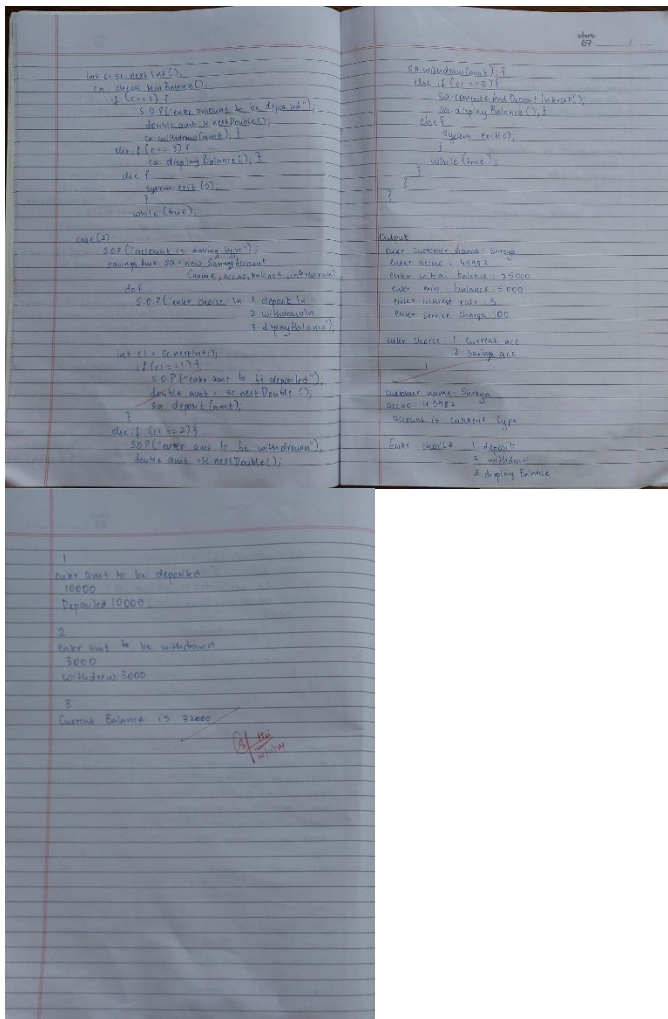 int c = sc.nextInt();
ca. check MinBalance();
if (c==2) {
S.O.P("enter amount to be deposited");
double amt = sc.nextDouble();
ca.withdraw(amt); }
else if (c==3) {
ca. displayBalance(); }
else {
system.exit(0);
}
while (true);
case(2):
S.O.P ("account is saving type");
savings Acct sa = new SavingAccount
(name, accno, balance, interest rate)
do {
S.O.P ("enter choice \n 1 deposit \n
2 withdraw \n
3 displayBalance");
int c1 = sc.nextInt();
if (c1==1) {
S.O.P ("enter amt to be deposited");
double amt = sc.nextDouble();
sa.deposit (amt);
}
else if (c1==2) {
S.O.P ("enter amt to be withdrawn");
double amt = sc.nextDouble();
sa.withdraw(amt); }
else if (c1==3) {
sa.compute And Deposit Interest();
sa.displayBalance(); }
else {
system.exit(0);
}
while (true);
}
}
}
Output
enter customer name: Shreya
enter accno: 45982
enter initial balance: 25000
enter min balance: 5000
enter interest rate: 5
enter service charge: 100
enter choice: 1. Current acc
2. Savings acc
1
Customer name: Shreya
accno: 45982
account is current type
Enter choice 1 deposit
2 withdraw
3 display Balance
1
enter amt to be deposited
10000
Deposited 10000
2
enter amt to be withdrawn
3000
withdrew 3000
3
Current Balance is 32000